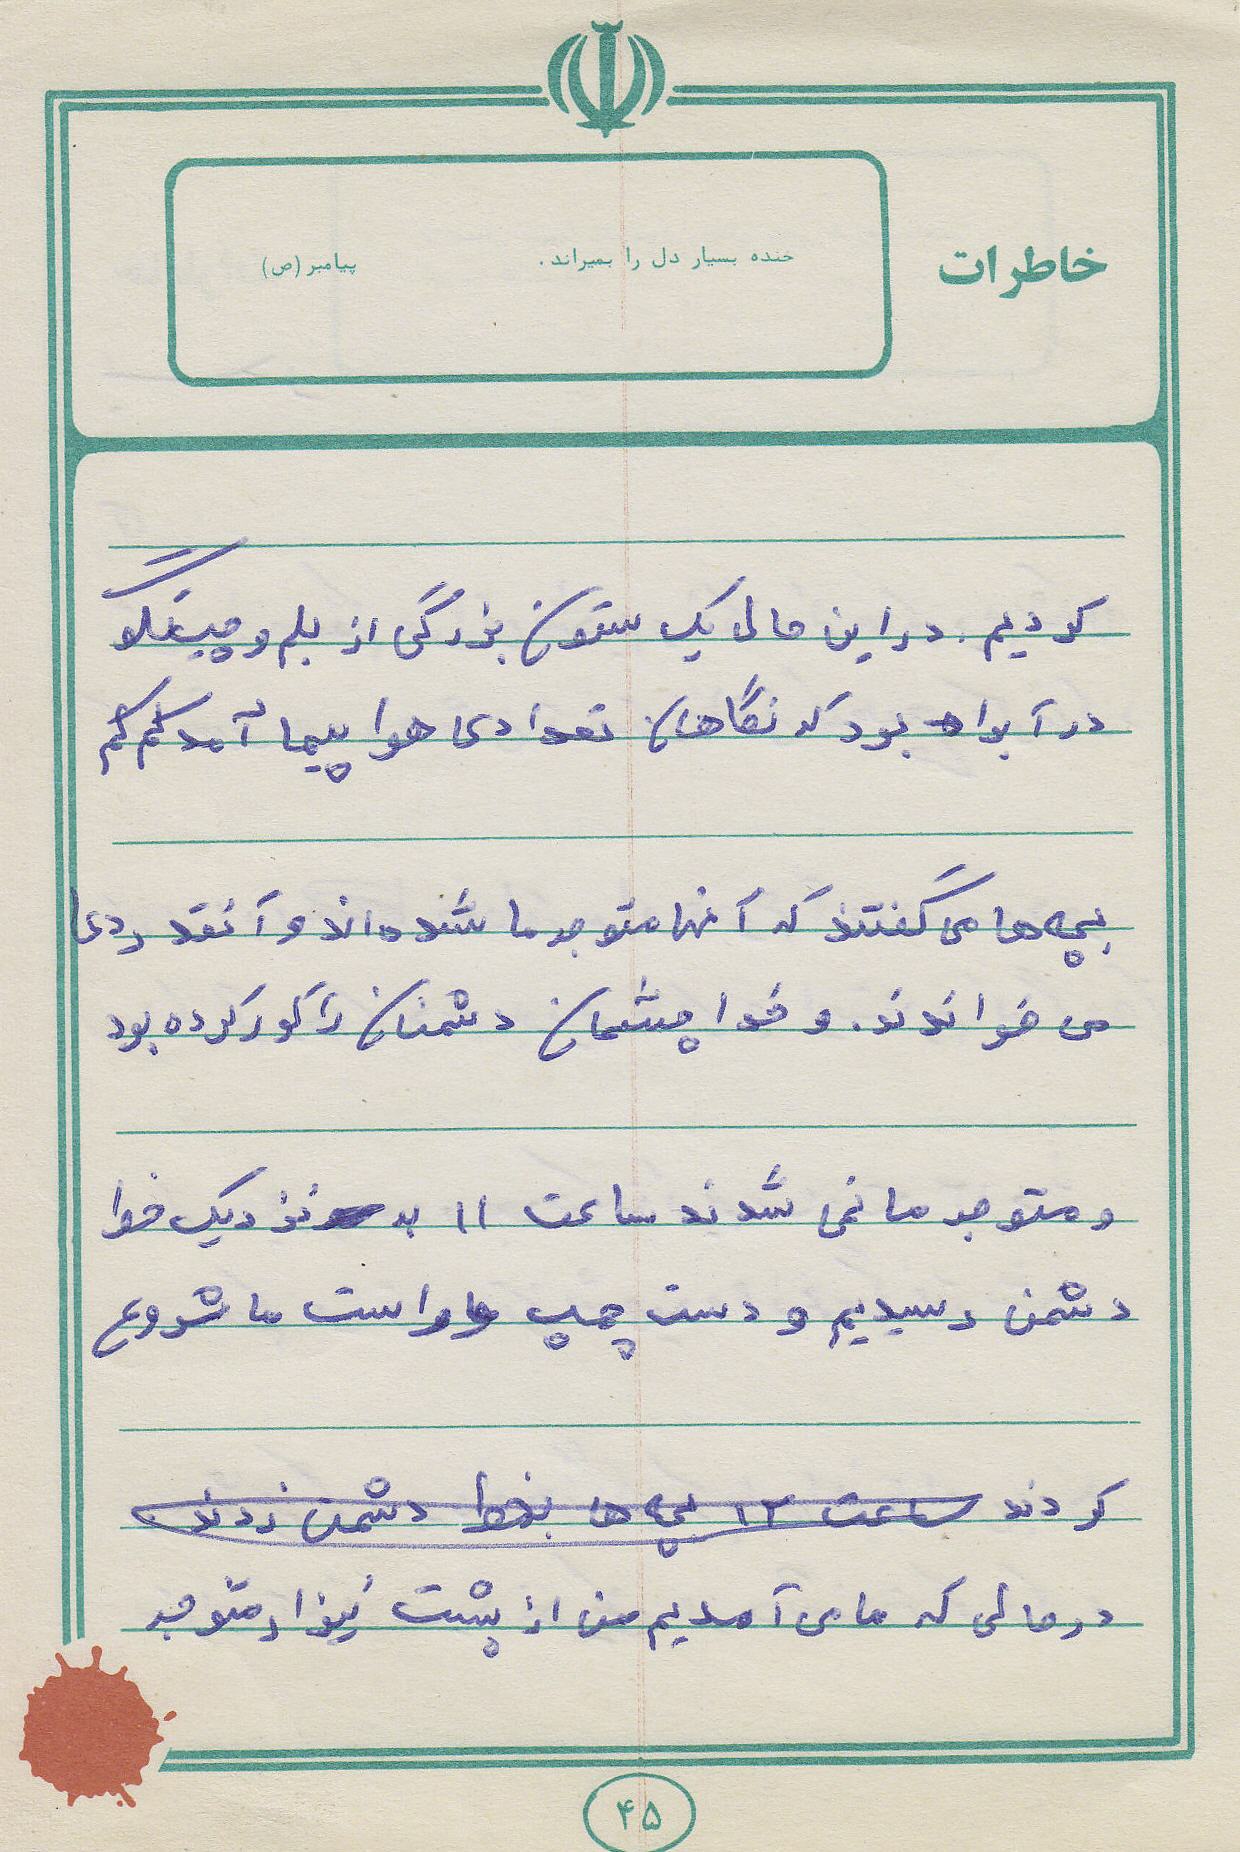 خاطرات
خنده بسیار دل را بمیراند. پیامبر (ص)
کردیم. در این حال یک ستون بزرگی از بلم و چینکو
در آبراه بود که نگاهان تعدادی هواپیما آمد کم کم
بچه ها می گفتند که آنها متوجه ما شده اند و آنقدر دعا
می خواندند. و خدا چشمان دشمنان را کور کرده بود
و متوجه ما نمی شدند ساعت ۱۱ به نزدیک خط
دشمن رسیدیم و دست چپ و راست ما شروع
کردند ساعت ۱۲ بچه ها بخط دشمن زدند.
در حالی که ما می آمدیم من از پشت نیزار متوجه
۴۵